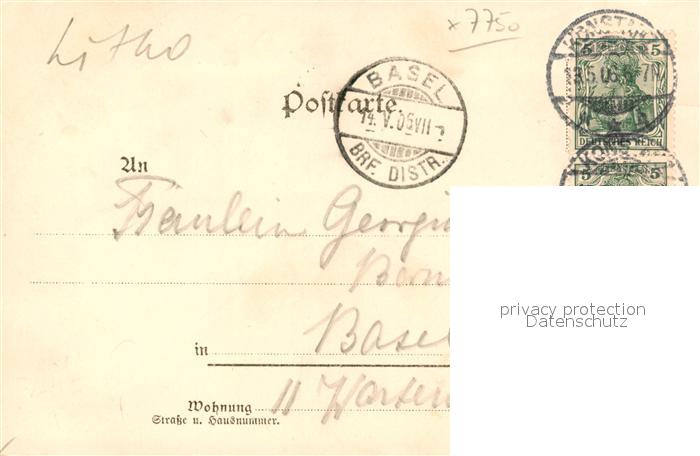 Litho
x 7750
Postkarte.
BASEL
14.V.05 VII
BRF. DISTR.
KONSTANZ
5 5
DEUTSCHES REICH
KONS
5 5
An
Fräulein
Basel
in
11
Wohnung
Straße u. Hausnummer.
privacy protection
Datenschutz